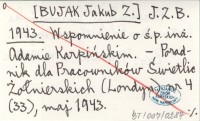 [BUJAK Jakub Z.] J.Z.B.
1943. Wspomnienie o ś.p. inż.
Adamie Karpińskim. - Porad-
nik dla Pracowników Świetlic
Żołnierskich (Londyn) nr 4
(33), maj 1943.